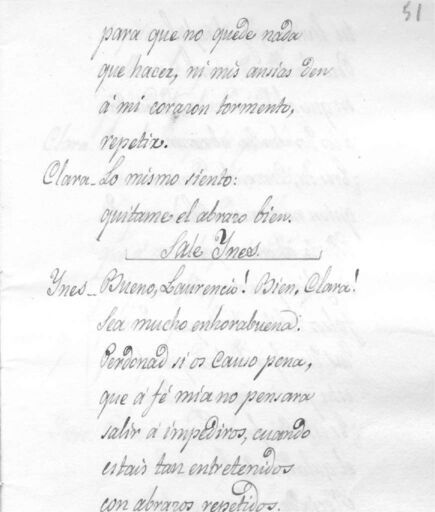 51
para que no quede nada
que hacer, ni mis ansias den
á mi corazon tormento,
repetir.
Clara_ Lo mismo siento:
quitame el abrazo bien.
Sale Ynes.
Ynes_ Bueno, Laurencio! Bien, Clara!
Sea mucho enhorabuena.
Perdonad si os causo pena,
que á fé mia no pensara
salir á impediros, cuando
estais tan entretenidos
con abrazos repetidos.